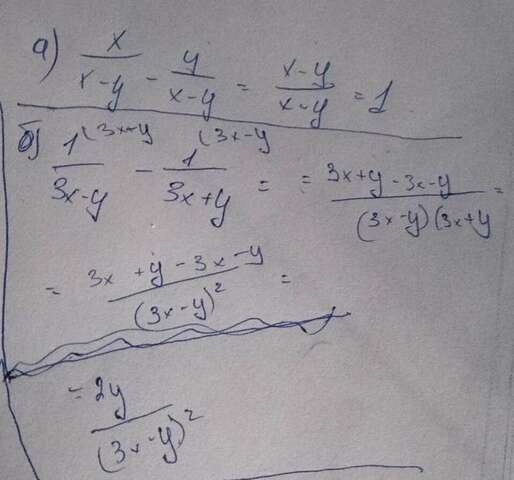 а) x/(x-y) - y/(x-y) = (x-y)/(x-y) = 1
б) 1(3x+y/(3x-y) - 1(3x-y/(3x+y) = = (3x+y-3x-y)/((3x-y)(3x+y) =
= (3x+y-3x-y)/(3x-y)² =
= 2y/(3x-y)²